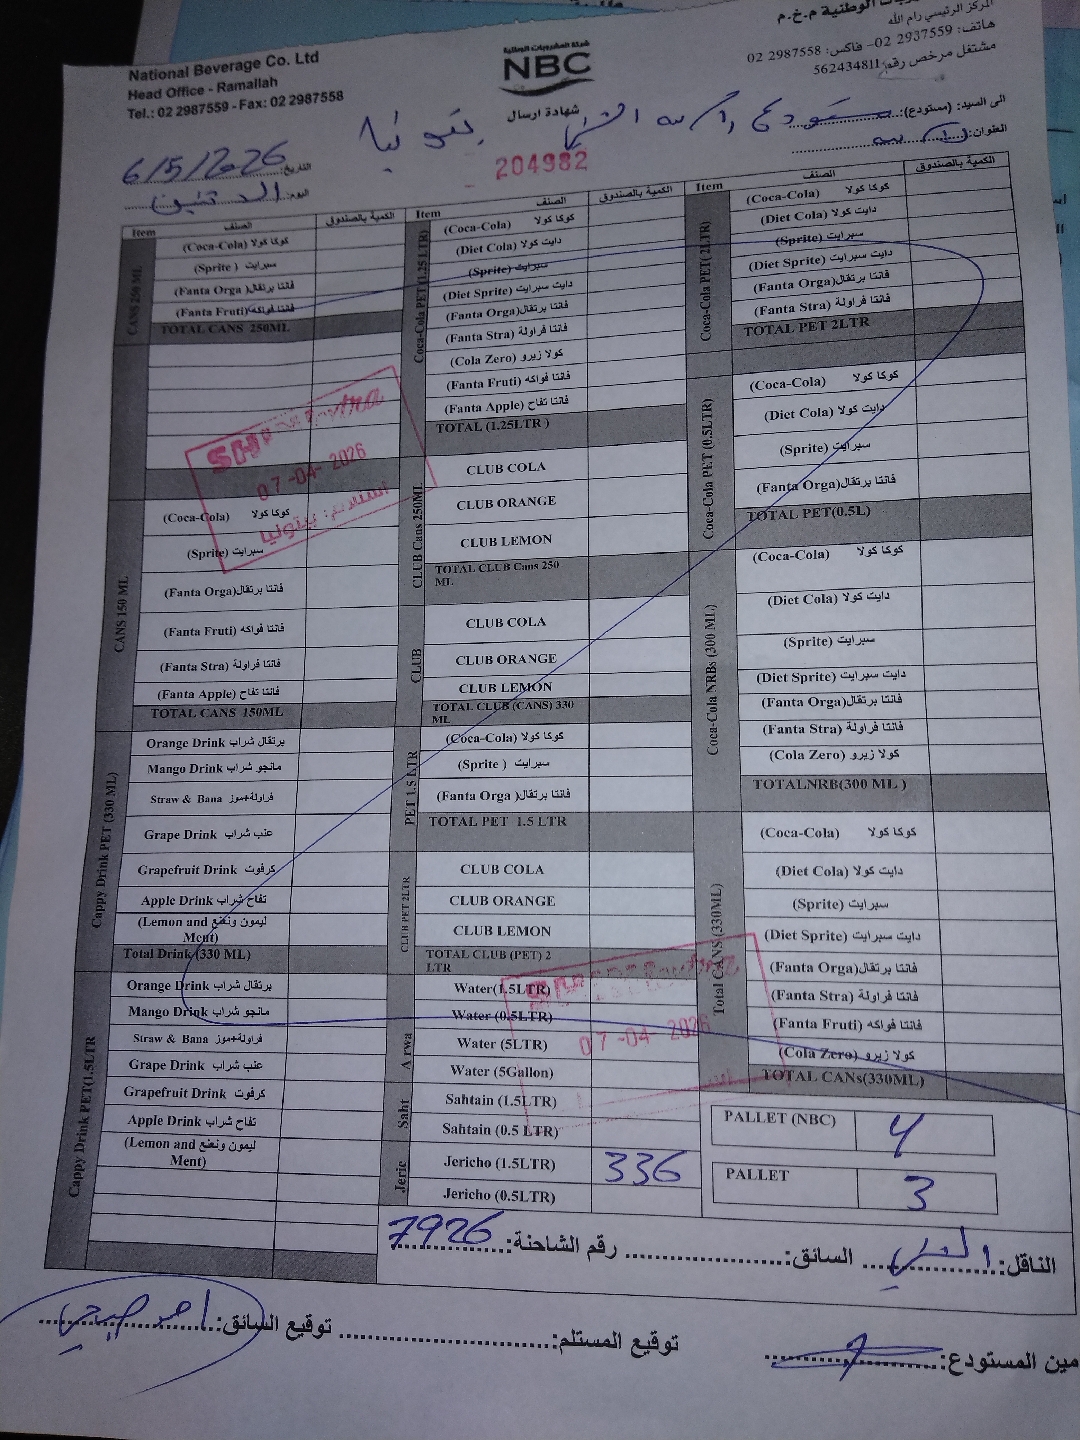 National Beverage Co. Ltd
Head Office - Ramallah
Tel.: 02 2987559 - Fax: 02 2987558
شركة المشروبات الوطنية
NBC
الوطنية م.خ.م
المركز الرئيسي رام الله
هاتف: 2937559 02– فاكس: 2987558 02
مشتغل مرخص رقم: 562434811
شهادة ارسال
204982
الى السيد: (مستودع):
العنوان:
التاريخ: 6/5/2026
اليوم:
Item الصنف الكمية بالصندوق
CANS 250 ML
(Coca-Cola) كوكا كولا
(Sprite ) سبرايت
(Fanta Orga )فانتا برتقال
(Fanta Fruti)فانتا فواكه
TOTAL CANS 250ML
CANS 150 ML
(Coca-Cola) كوكا كولا
(Sprite) سبرايت
(Fanta Orga)فانتا برتقال
(Fanta Fruti) فانتا فواكه
(Fanta Stra) فانتا فراولة
(Fanta Apple) فانتا تفاح
TOTAL CANS 150ML
Cappy Drink PET (330 ML)
Orange Drink برتقال شراب
Mango Drink مانجو شراب
Straw & Bana فراولة+موز
Grape Drink عنب شراب
Grapefruit Drink كرفوت
Apple Drink تفاح شراب
(Lemon and ليمون ونعنع
Ment)
Total Drink (330 ML)
Cappy Drink PET(1.5LTR
Orange Drink برتقال شراب
Mango Drink مانجو شراب
Straw & Bana فراولة+موز
Grape Drink عنب شراب
Grapefruit Drink كرفوت
Apple Drink تفاح شراب
(Lemon and ليمون ونعنع
Ment)
Item الصنف الكمية بالصندوق
Coca-Cola PET (1.25 LTR)
(Coca-Cola) كوكا كولا
(Diet Cola) دايت كولا
(Sprite) سبرايت
(Diet Sprite) دايت سبرايت
(Fanta Orga)فانتا برتقال
(Fanta Stra) فانتا فراولة
(Cola Zero) كولا زيرو
(Fanta Fruti) فانتا فواكه
(Fanta Apple) فانتا تفاح
TOTAL (1.25LTR )
CLUB Cans 250ML
CLUB COLA
CLUB ORANGE
CLUB LEMON
TOTAL CLUB Cans 250
ML
CLUB
CLUB COLA
CLUB ORANGE
CLUB LEMON
TOTAL CLUB (CANS) 330
ML
PET 1.5 LTR
(Coca-Cola) كوكا كولا
(Sprite ) سبرايت
(Fanta Orga )فانتا برتقال
TOTAL PET 1.5 LTR
CLUB PET 2LTR
CLUB COLA
CLUB ORANGE
CLUB LEMON
TOTAL CLUB (PET) 2
LTR
Arwa
Water(1.5LTR)
Water (0.5LTR)
Water (5LTR)
Water (5Gallon)
Saht
Sahtain (1.5LTR)
Sahtain (0.5 LTR)
Jeric
Jericho (1.5LTR) 336
Jericho (0.5LTR)
Item الصنف الكمية بالصندوق
Coca-Cola PET( 2LTR)
(Coca-Cola) كوكا كولا
(Diet Cola) دايت كولا
(Sprite) سبرايت
(Diet Sprite) دايت سبرايت
(Fanta Orga)فانتا برتقال
(Fanta Stra) فانتا فراولة
TOTAL PET 2LTR
Coca-Cola PET (0.5LTR)
(Coca-Cola) كوكا كولا
(Diet Cola) دايت كولا
(Sprite) سبرايت
(Fanta Orga)فانتا برتقال
TOTAL PET(0.5L)
Coca-Cola NRBs (300 ML)
(Coca-Cola) كوكا كولا
(Diet Cola) دايت كولا
(Sprite) سبرايت
(Diet Sprite) دايت سبرايت
(Fanta Orga)فانتا برتقال
(Fanta Stra) فانتا فراولة
(Cola Zero) كولا زيرو
TOTALNRB(300 ML )
Total CANS (330ML)
(Coca-Cola) كوكا كولا
(Diet Cola) دايت كولا
(Sprite) سبرايت
(Diet Sprite) دايت سبرايت
(Fanta Orga)فانتا برتقال
(Fanta Stra) فانتا فراولة
(Fanta Fruti) فانتا فواكه
(Cola Zero) كولا زيرو
TOTAL CANs(330ML)
PALLET (NBC) 4
PALLET 3
07-04-2026
استلام: بيتونيا
07-04-2026
الناقل: السائق: رقم الشاحنة: 7926
مين المستودع: توقيع المستلم: توقيع السائق: